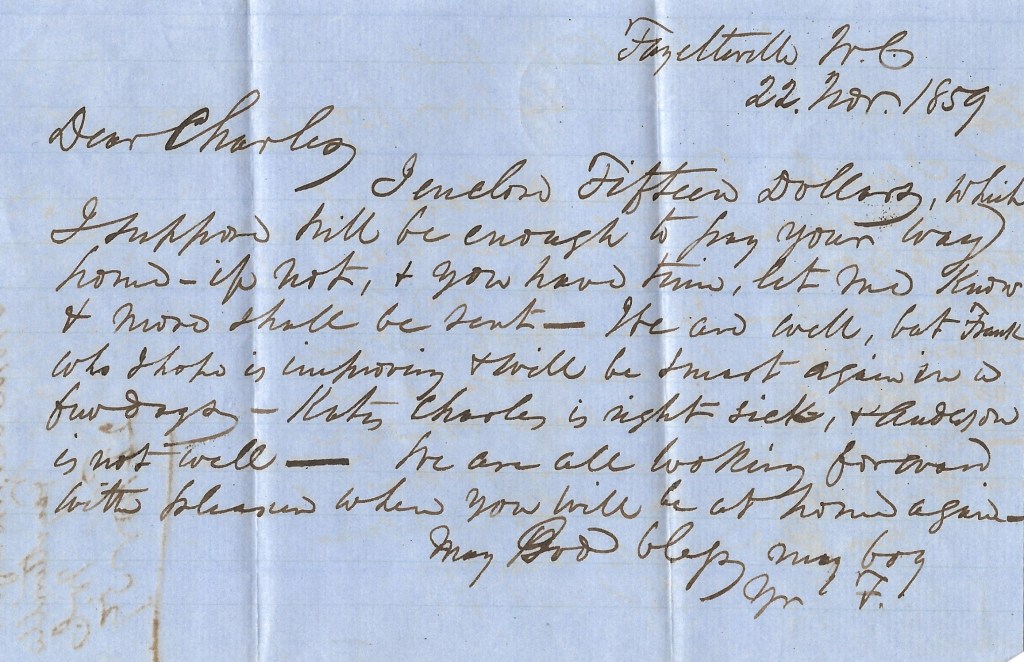 Fayetteville N.C.
22. Nov. 1859
Dear Charles
I enclose Fifteen Dollars, which
I suppose will be enough to pay your way
home - if not, & you have time, let me know
& more shall be sent — We are well, but Frank
who I hope is improving & will be smart again in a
few days - Katy Charles is right sick, & Anderson
is not well — We are all looking forward
with pleasure when you will be at home again -
May God bless my boy
Yr F.